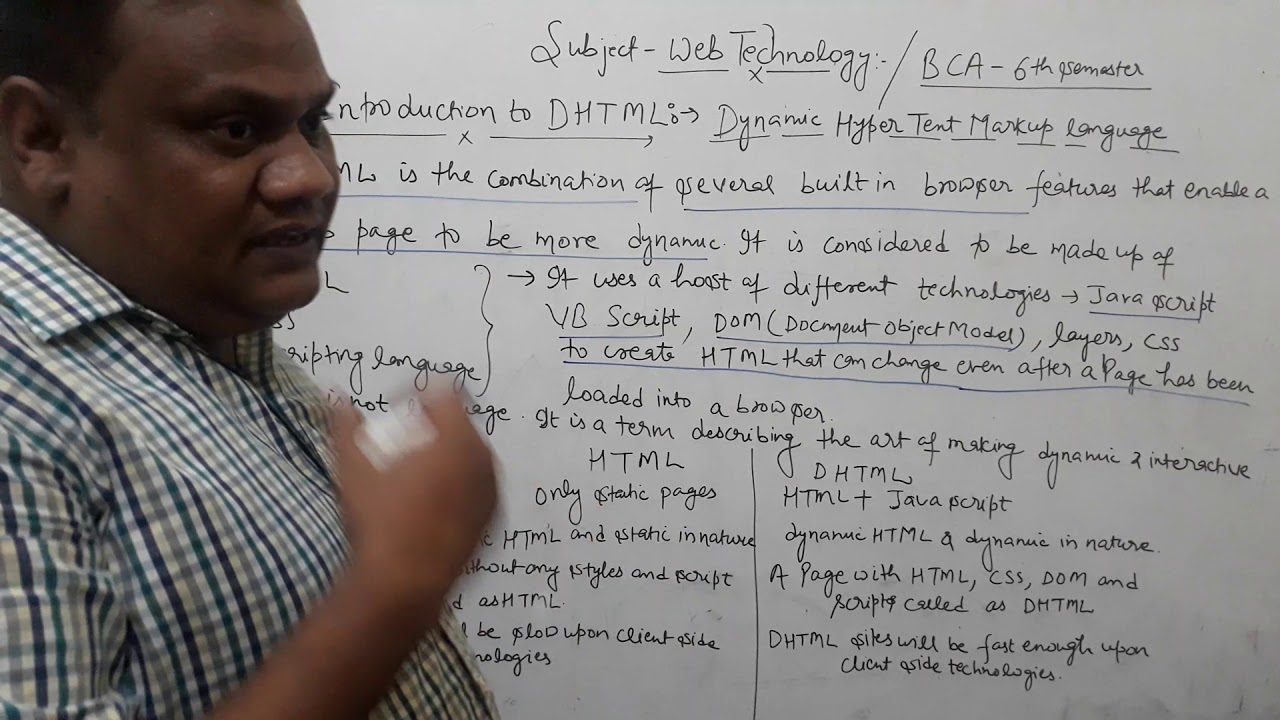 Subject - Web Technology :- / BCA - 6th Semester
ntroduction to DHTML :→ Dynamic Hyper Tent Markup language
ML is the combination of several built in browser features that enable a
page to be more dynamic. It is considered to be made up of
L
→ It uses a hoast of different technologies → Java script
VB Script, DOM (Document Object Model), layers, CSS
ripting language
to create HTML that can change even after a Page has been
loaded into a browser.
is not language. It is a term describing the art of making dynamic & interactive
HTML DHTML
Only static pages HTML + Java script
ic HTML and static in nature dynamic HTML & dynamic in nature.
ithout any styles and script A Page with HTML, CSS, DOM and
d as HTML. Scripts called as DHTML
l be sloD upon client side DHTML sites will be fast enough upon
nologies client side technologies.